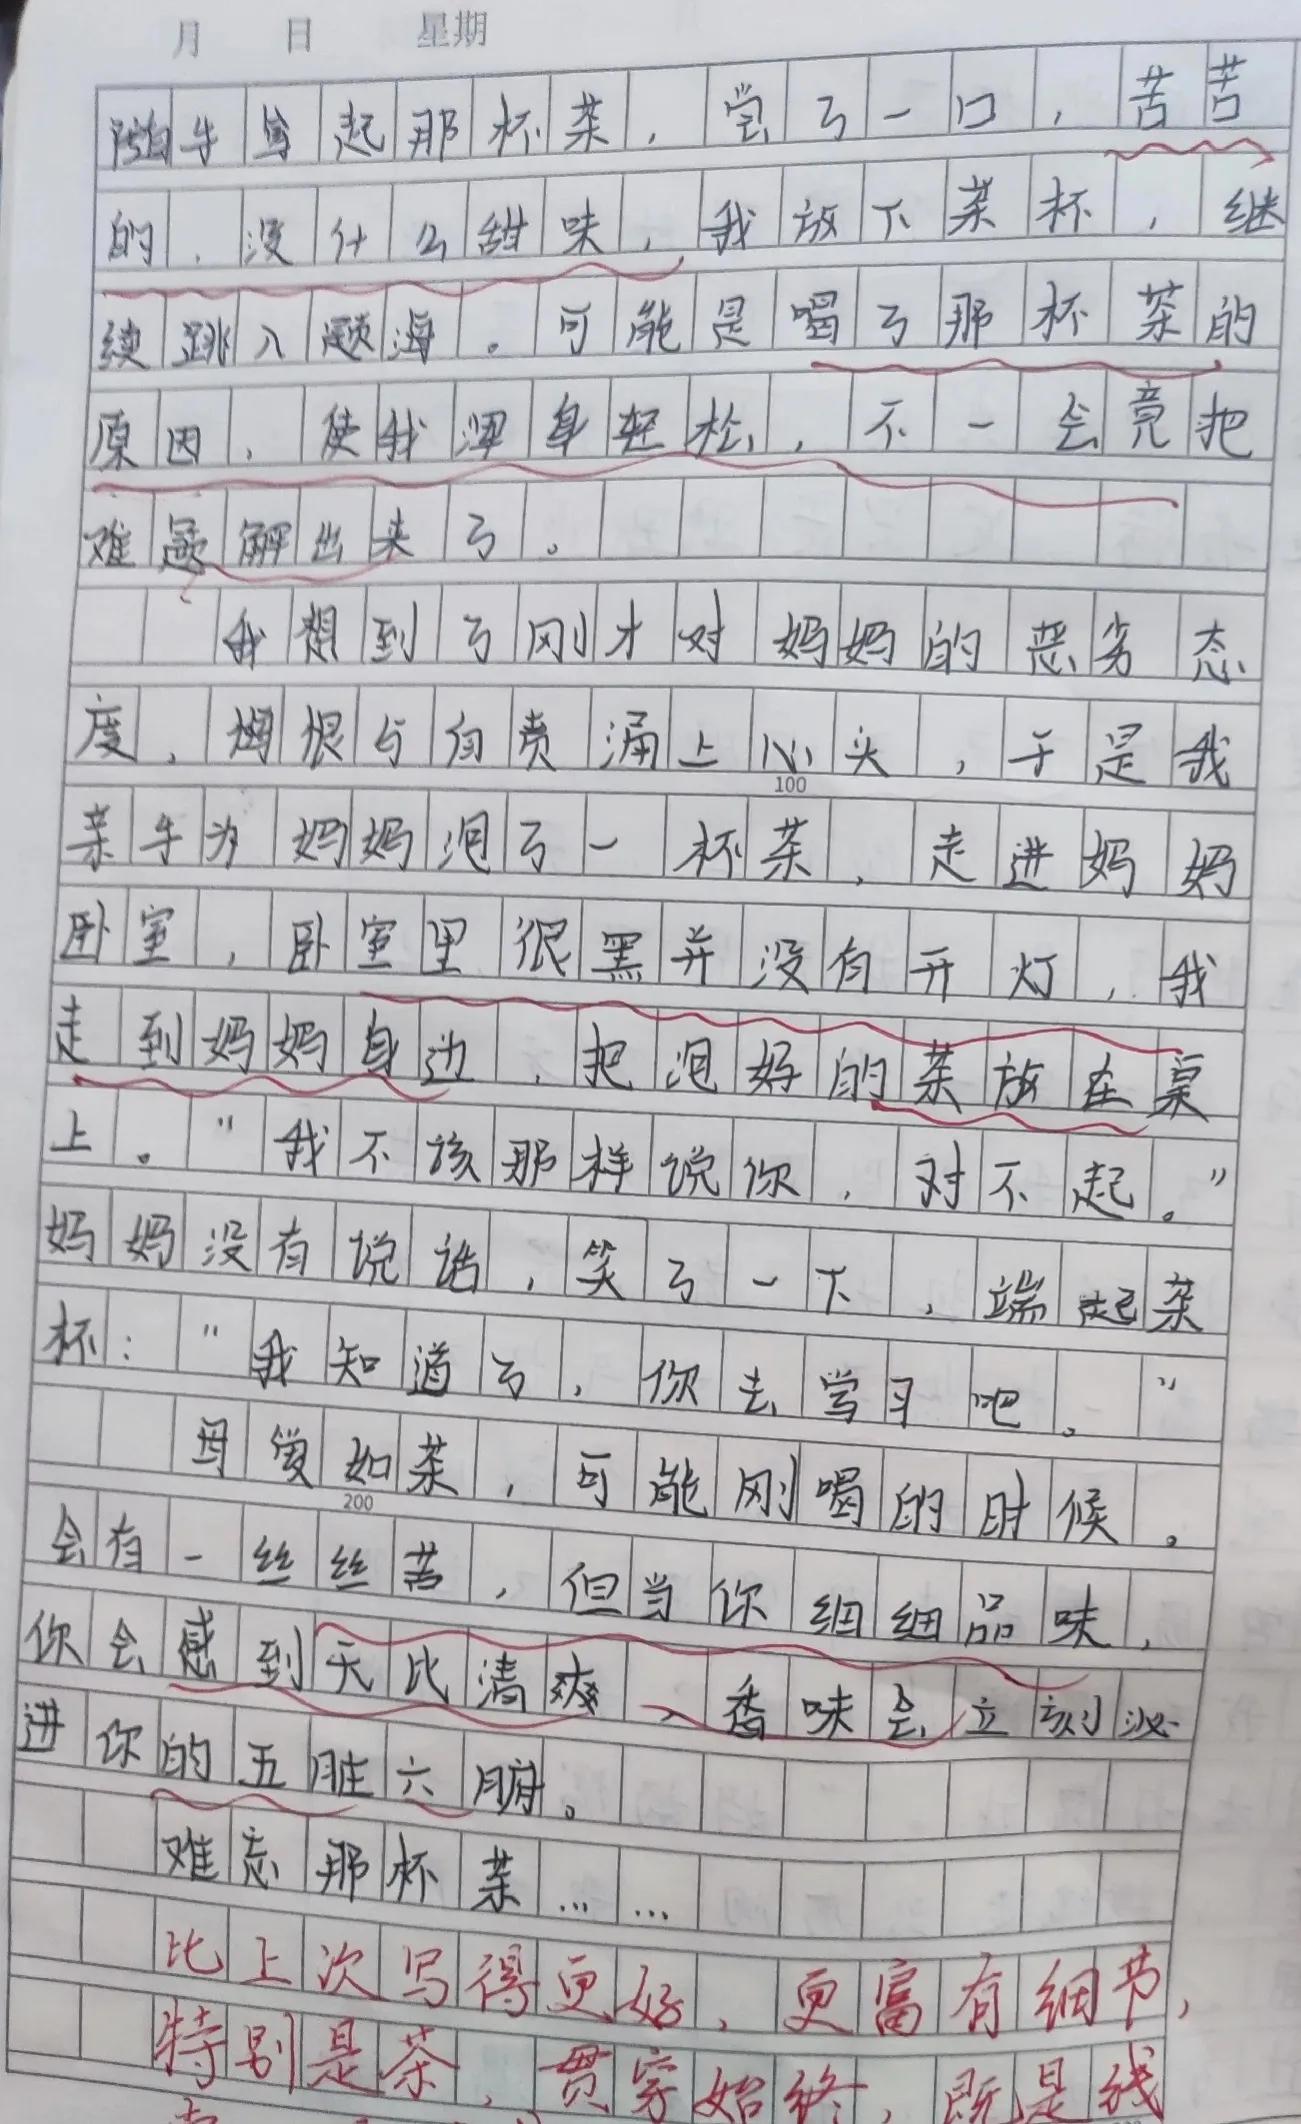 月 日 星期
随手拿起那杯茶，尝了一口，苦苦
的，没什么甜味，我放下茶杯，继
续跳入题海。可能是喝了那杯茶的
原因，使我浑身轻松，不一会竟把
难题解出来了。
我想到了刚才对妈妈的恶劣态
度，悔恨与自责涌上心头，于是我
100
亲手为妈妈泡了一杯茶，走进妈妈
卧室，卧室里很黑并没有开灯，我
走到妈妈身边，把泡好的茶放在桌
上。“我不该那样说你，对不起。”
妈妈没有说话，笑了一下，端起茶
杯：“我知道了，你去学习吧。”
母爱如茶，可能刚喝的时候。
200
会有一丝丝苦，但当你细细品味，
你会感到无比清爽，香味会立刻泌
进你的五脏六腑。
难忘那杯茶……
比上次写得更好，更富有细节，
特别是茶，贯穿始终，既是线